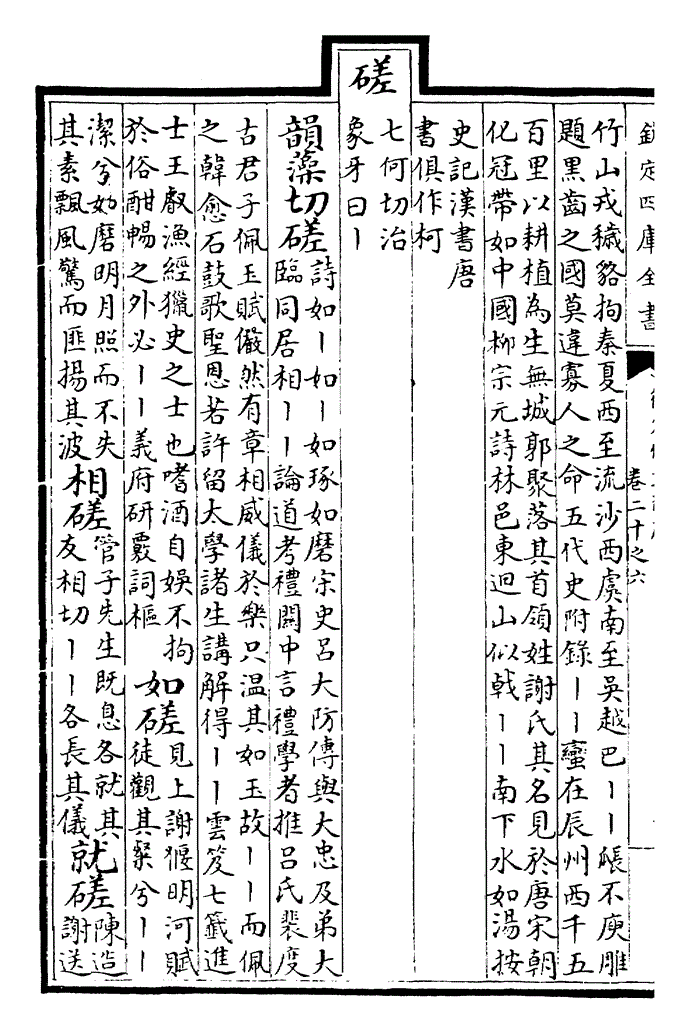 欽定四庫全書
卷二十之六
竹山戎穢貉拘秦夏西至流沙西虞南至吳越巴丨丨不庾雕
題黑齒之國莫違寡人之命五代史附錄丨丨蠻在辰州西千五
百里以耕植為生無城郭聚落其首領姓謝氏其名見於唐宋朝
化冠帶如中國柳宗元詩林邑東迴山似戟丨丨南下水如湯按
史記漢書唐
書俱作柯
磋
七何切治
象牙曰丨
韻藻切磋
詩如丨如丨如琢如磨宋史呂大防傳與大忠及弟大
臨同居相丨丨論道考禮關中言禮學者推呂氏裴度
古君子佩玉賦儼然有章相威儀於樂只溫其如玉故丨丨而佩
之韓愈石鼓歌聖恩若許留太學諸生講解得丨丨雲笈七籤進
士王叡漁經獵史之士也嗜酒自娛不拘
於俗酣暢之外必丨丨義府研覈詞樞
如磋
見上謝偃明河賦
徒觀其粲兮丨丨
潔兮如磨明月照而不失
其素飄風驚而匪揚其波
相磋
管子先生既息各就其
友相切丨丨各長其儀
就磋
陳造
謝送